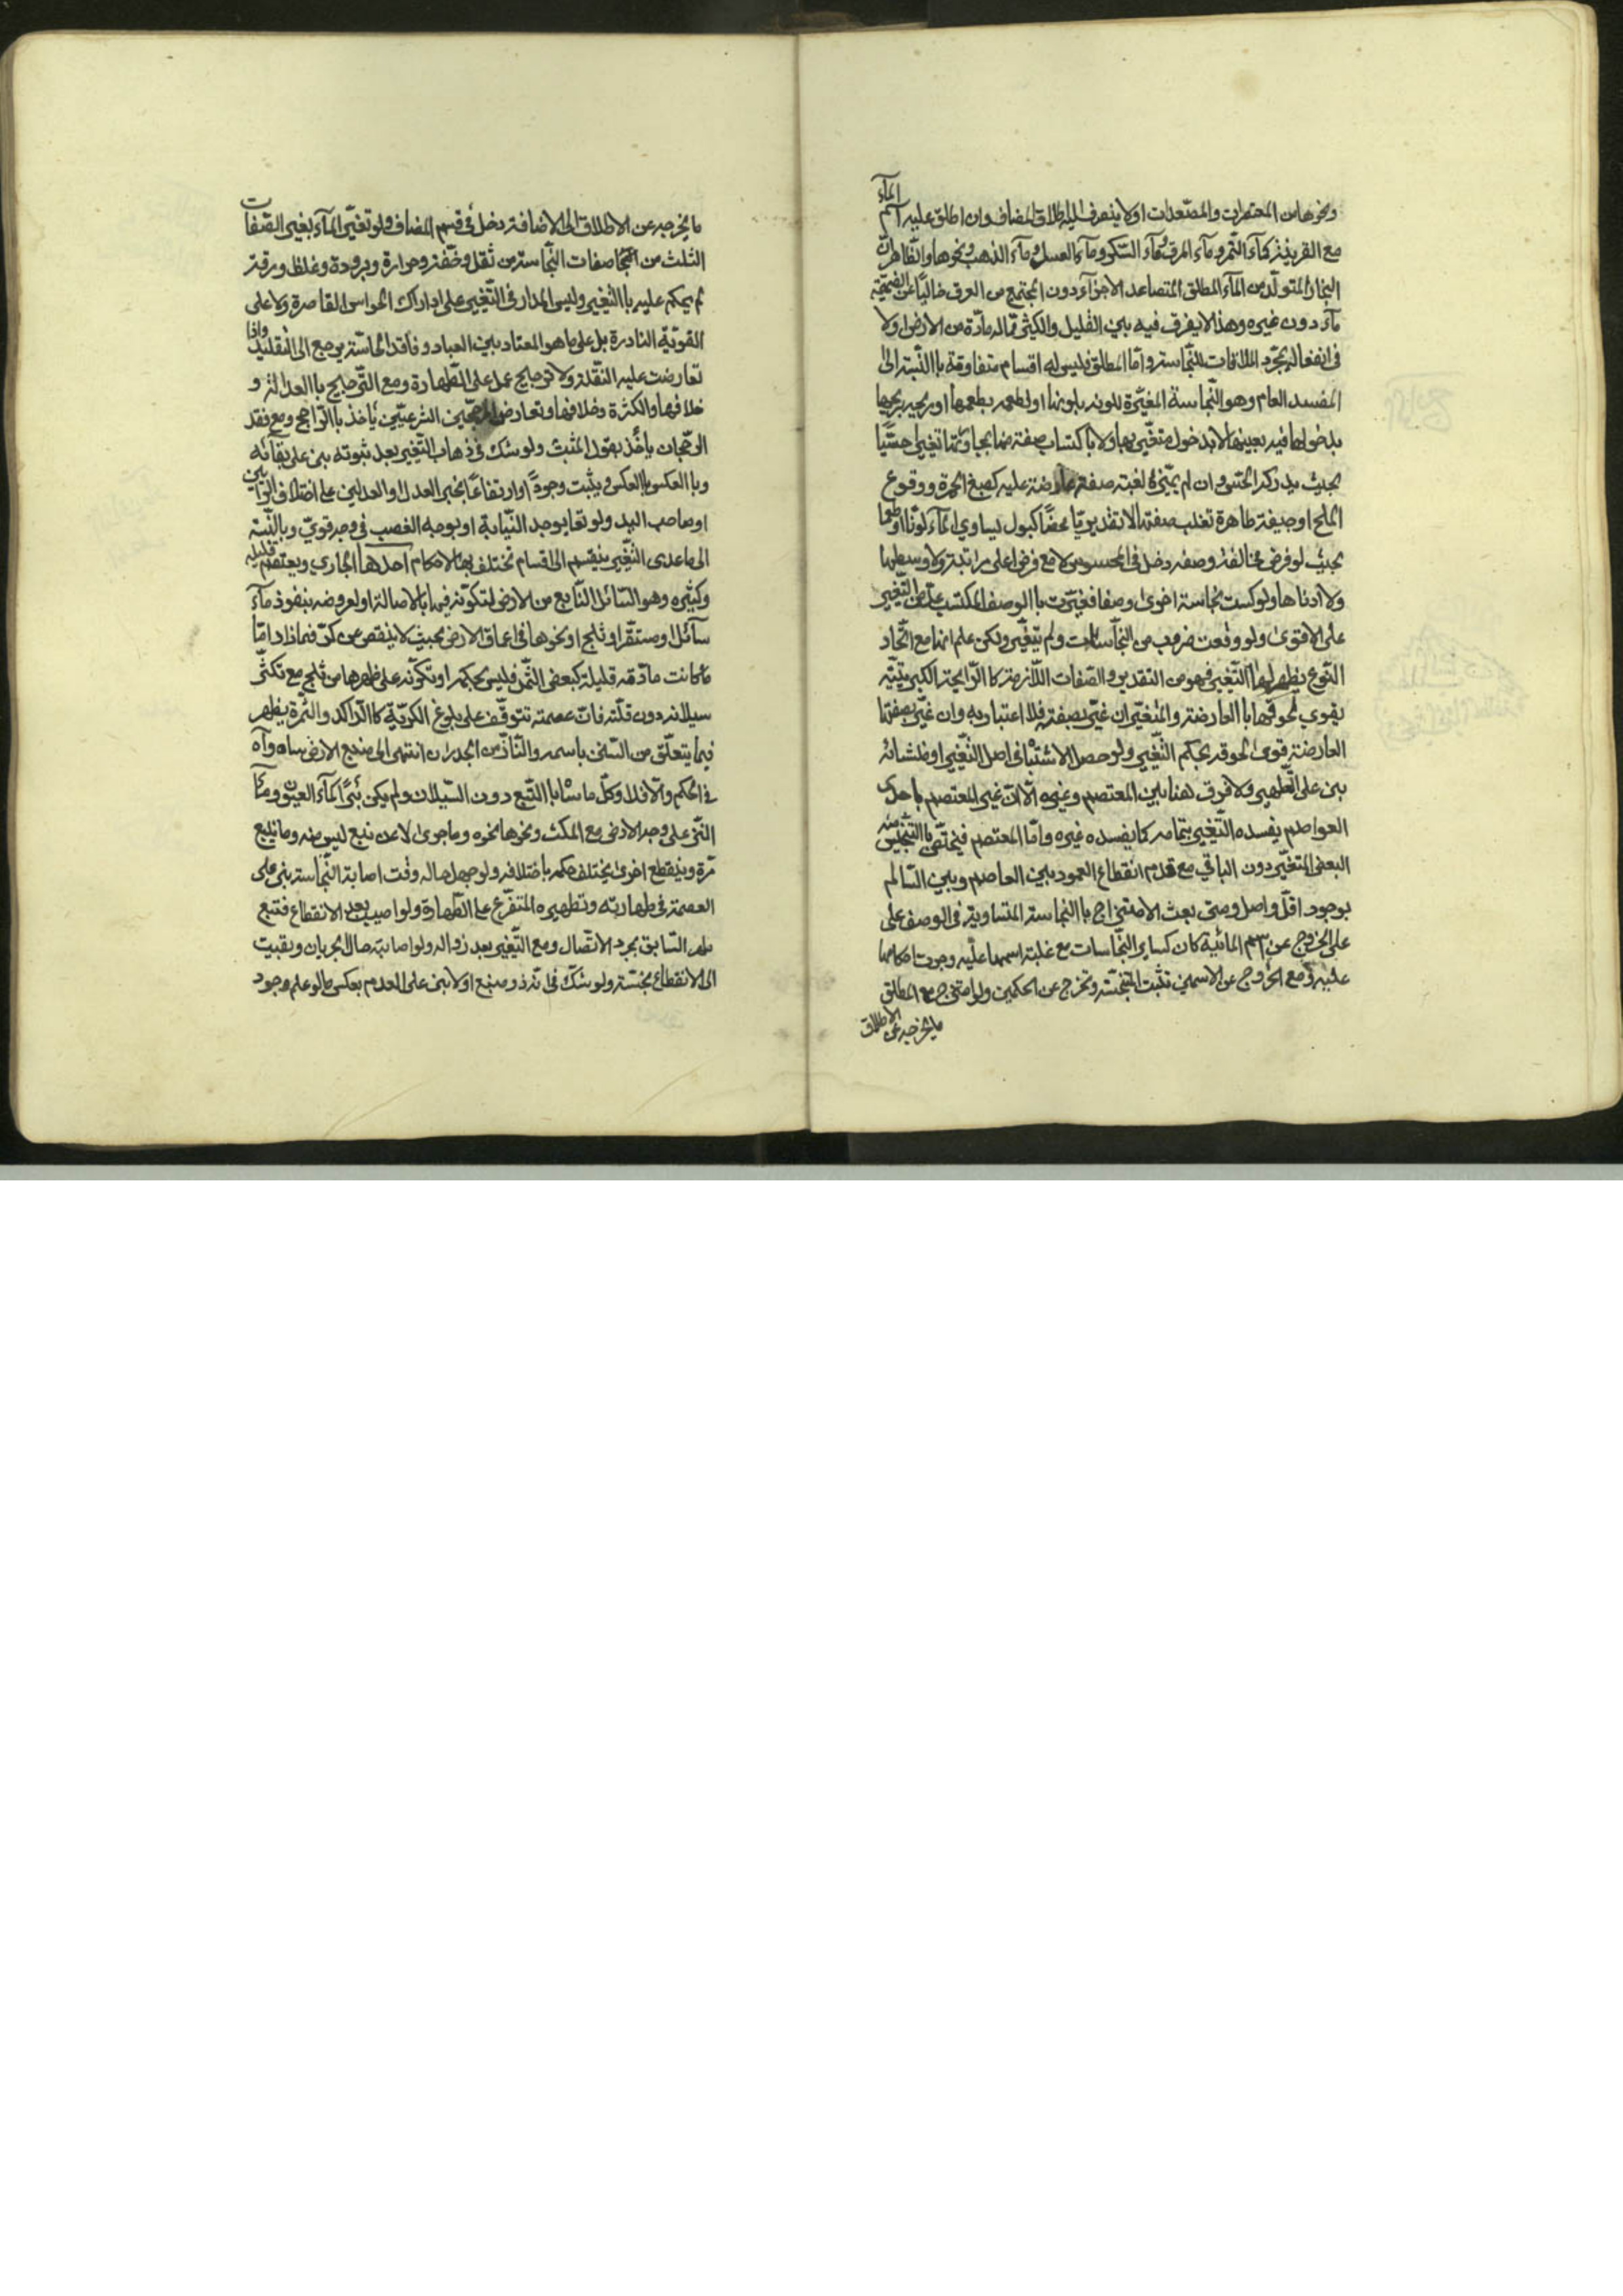 ونحوها من المعتصرات والمصعدات او لا ينصرف اليه اطلاق المضاف وان اطلق عليه اسم الماء
مع القرينة كماء التمر وماء المرق وماء السكر وماء العسل وماء الذهب ونحوها والظاهر ان
البخار المتولد من الماء المطلق المتصاعد الاجزاء دون المجتمع من العرق خاليا عن الضميمة
ماء دون غيره وهذا لا يفرق فيه بين القليل والكثير مما له مادة من الارض او لا
في انفعاله بمجرد الملاقات للنجاسة واما المطلق فليس له اقسام متفاوتة باالنسبة الى
المفسد العام وهو النجاسة المغيرة للونه بلونها او لطعمه بطعمها او ريحه بريحها
بدخولها فيه بعينها لا بدخول متغير بها ولا باكتساب صفة منها بمجاورتها تغييرا حسيا
بحيث يدركه الحس وان لم يميزه لغلبة صفة عارضة عليه كصبغ الحمرة ووقوع
الملح او جيفة طاهرة تغلب صفته لا تقديريا محضا كبول يساوي الماء لونا او طعما
بحيث لو فرض مخالفة وصفه دخل في المحسوس لا مع فرض اعلى مراتبه ولا وسطها
ولا ادناها ولو كست نجاسة اخرى وصفا فغيرت باالوصف المكتسب عد من التغير
على الاقوى ولو وقعت ضروب من النجاسات ولم يتغير ولكن علم انها مع اتحاد
النوع يظهر لها التغير فهو من التقدير والصفات اللازمة كاالرايحة الكبريتية
يقوي لحوقها باالعارضة والمتغير ان غير بصفته فلا اعتبار به وان غير بصفتها
العارضة قوى لحوقه بحكم التغيير ولو حصل الاشتباه في اصل التغير او منشائه
بنى على التطهير ولا فرق هنا بين المعتصم وغيره الا ان غير المعتصم باحدى
العواصم يفسده التغير بتمامه كما يفسده غيره واما المعتصم فيختص باالتنجيس منه
البعض المتغير دون الباقي مع عدم انقطاع العمود بين العاصم وبين السالم
بوجود اقل واصل ومتى بعث الامتزاج باالنجاسة المتساوية في الوصف على
على الخروج عن اسم المائية كان كساير النجاسات مع غلبة اسمها عليه وجرت احكامها
عليه ومع الخروج عن الاسمين تثبت النجسة وتخرج عن الحكمين ولو امتزج مع المطلق
ما يخرجه عن الاطلاق
ما يخرجه عن الاطلاق الى الاضافة دخل في قسم المضاف ولو تغير الماء بغير الصفات
الثلث من صفات النجاسة من ثقل وخفة وحرارة وبرودة وغلظ ورقة
لم يحكم عليه باالتغيير وليس المدار في التغيير على ادراك الحواس القاصرة ولا على
القوية النادرة بل على ما هو المعتاد بين العباد وفاقد الحاسة يرجع الى التقليد واذا
تعارضت عليه النقلة ولا ترجيح عمل على الطهارة ومع الترجيح باالعدالة و
خلافها والكثرة وخلافها وتعارض المرجحين الشرعيين يأخذ باالراجح ومع فقد
الرجحان يأخذ بقول المثبت ولو شك في ذهاب التغير بعد ثبوته بنى على بقائه
وباالعكس باالعكس ويثبت وجودا وارتفاعا بخبر العدل والعدلين على اختلاف الرأيين
او صاحب اليد ولو تعا بوجه النيابة او بوجه الغصب في وجه قوي وبالنسبة
الى ما عدى التغير ينقسم الى اقسام تختلف بها الاحكام احدها الجاري ويعتصم قليله
وكثيره وهو السائل النابع من الارض لتكونه فيها بالاصالة او لعروضه بنفوذ ماء
سائل او مستقر او ثلج او نحوها في اعماق الارض بحيث لا ينقص عن كر فما زاد اما
ما كانت مادته قليلة كبعض الثمد فليس بحكمه او تكونه على ظهرها من ثلج مع تكثر
سيلانه دون قلته فان عصمته تتوقف على بلوغ الكرية كاالراكد والثمرة يظهر
فيما يتعلق من السفن باسمه والناز من الجدران انتهى الى منبع الارض ساواه
في الحكم والا فلا وكل ما ساباالتبع دون السيلان ولم يكن بئرا كماء العيون وماء
النز على وجه الارض مع المكث ونحوها نحوه وما جرى لا عن نبع ليس منه وما ينبع
مرة وينقطع اخرى يختلف حكمه باختلافه ولو جهل حاله وقت اصابة النجاسة بنى على
العصمة في طهارته وتطهيره المتفرع على الطهارة ولو اصيب بعد الانقطاع فتبع
طهر السابق بمجرد الاتصال ومع التغير بعد زواله ولو اصابته حال الجريان وبقيت
الى الانقطاع نجسته ولو شك في انه ذو منبع او لا بنى على العدم بعكس ما لو علم وجود